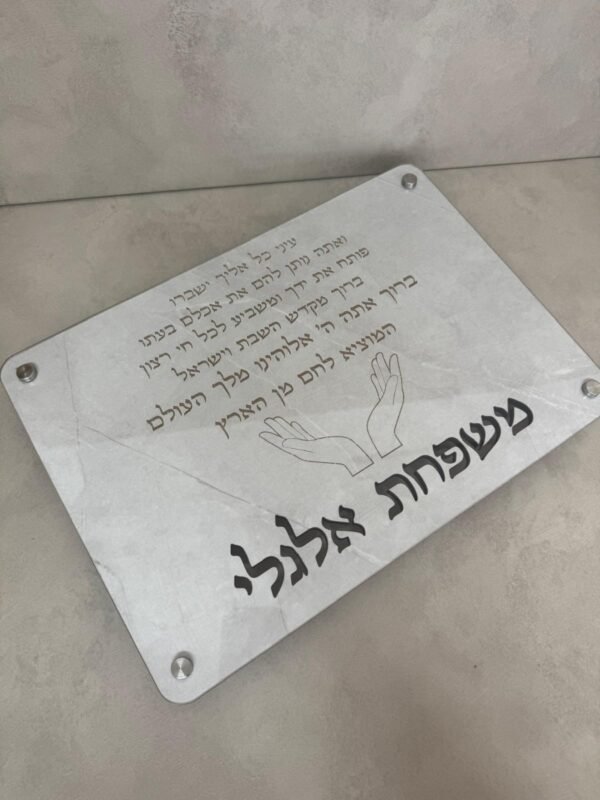 עיני כל אליך ישברו
ואתה נותן להם את אכלם בעתו
פותח את ידך ומשביע לכל חי רצון
ברוך מקדש השבת וישראל
ברוך אתה ה' אלוהינו מלך העולם
המוציא לחם מן הארץ
משפחת אלגלי